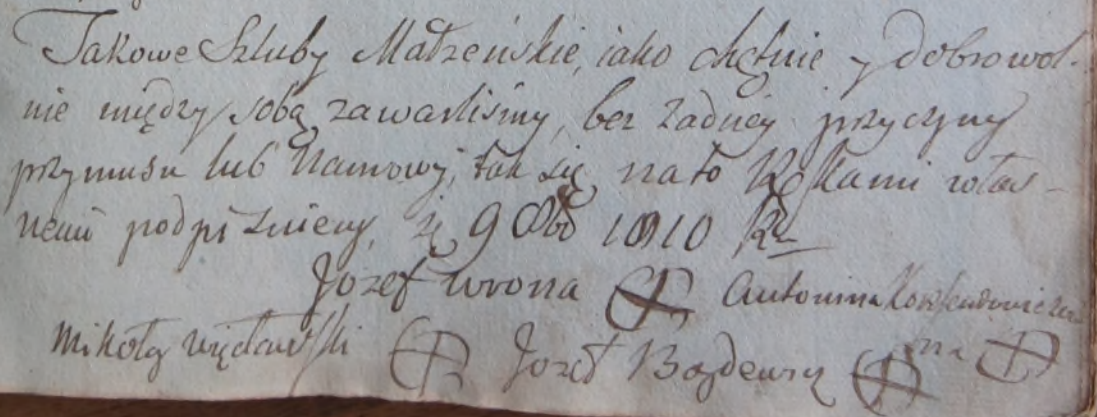 Takowe Szluby Małzeńskie, iako chętnie y dobrowol-
nie między sobą zawarlismy, bez żadney przyczyny
przymusu lub namowy, tak się na to Rękami włas-
nemi podpiszniemy, 9 8bb 1810 Ru
Jozef Wrona Antonina
Mikołay Józef na